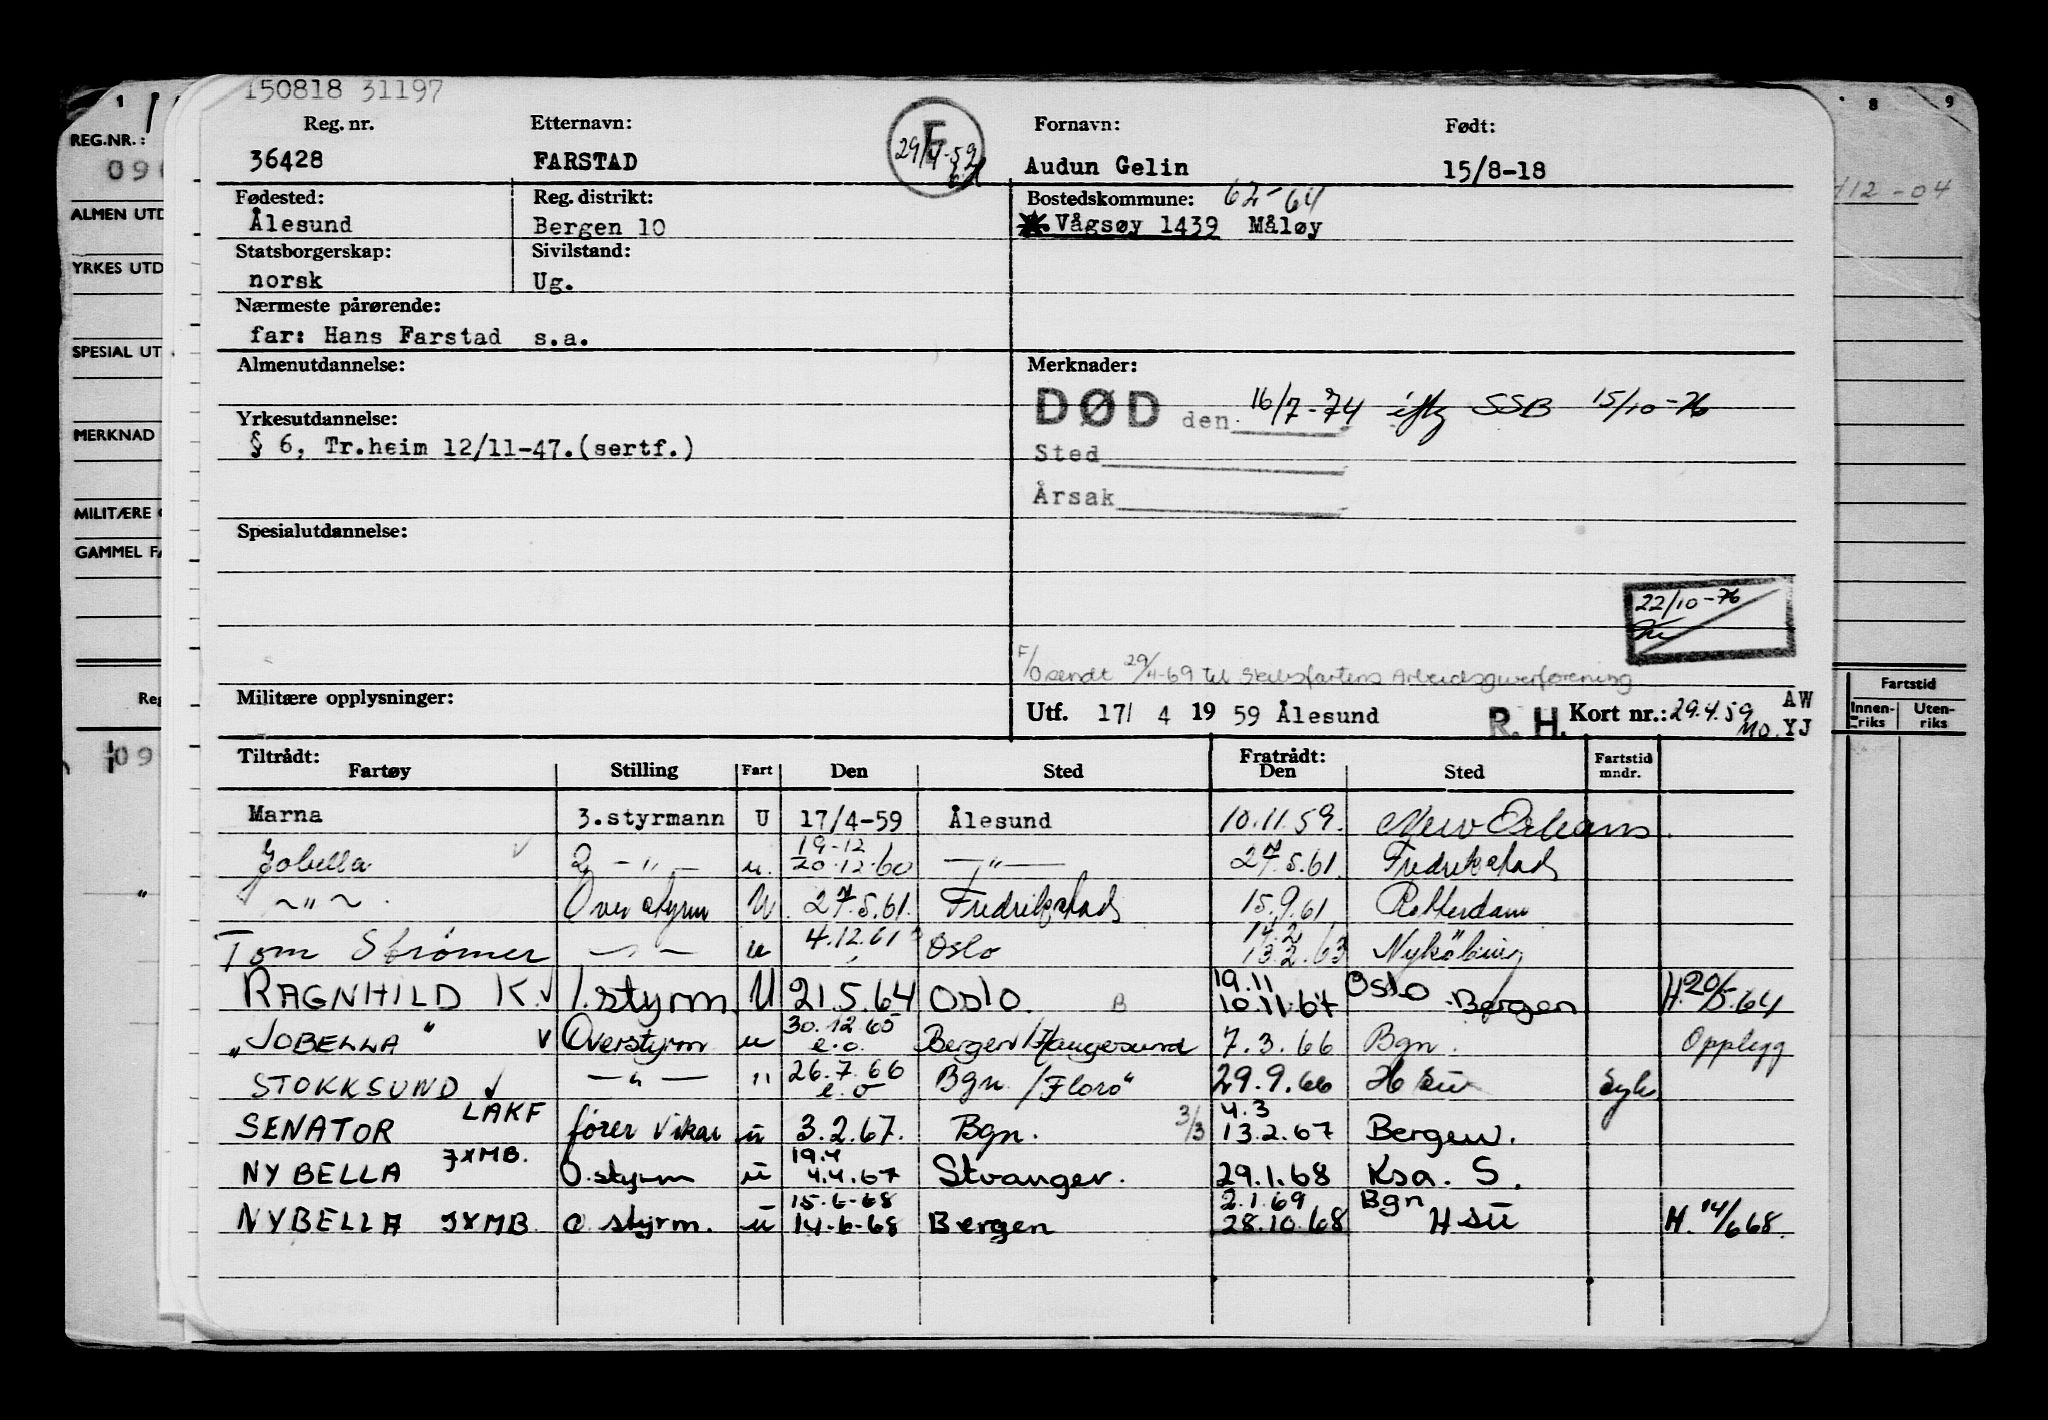 150818 31197
Reg. nr. Etternavn: Fornavn: Født:
36428 FARSTAD Audun Gelin 15/8-18
F
29/4-59
Fødested: Reg. distrikt: Bostedskommune: 62-64
Ålesund Bergen 10 Vågsøy 1439 Måløy
Statsborgerskap: Sivilstand:
norsk Ug.
Nærmeste pårørende:
far: Hans Farstad s.a.
Almenutdannelse: Merknader:
DØD den 16/7-74 iflg SSB 15/10-76
Yrkesutdannelse:
§ 6, Tr.heim 12/11-47.(sertf.)
Sted
Årsak
Spesialutdannelse:
22/10-76
F/O sendt 29/4-69 til Skibsfartens Arbeidsgiverforening
Militære opplysninger: Utf. 17/ 4 19 59 Ålesund R. H. Kort nr.: 29.4.59 AW
MO. YJ
Tiltrådt: Fratrådt:
Fartøy Stilling Fart Den Sted Den Sted Fartstid mndr.
Marna 3.styrmann U 17/4-59 Ålesund 10.11.59. New Orleans.
19-12
Jobella 2 - " - u. 20.12.60 - " - 27.5.61. Fredrikstad
~ " ~ Overstyrm U 27.5.61. Fredrikstad 15.9.61 Rotterdam
14.2
Tom Strömer - " - u 4.12.61 Oslo 13.2.63 Nyköbing
19.11
RAGNHILD K. 1.styrm. U 21.5.64 Oslo. B 10.11.67 Oslo Bergen H. 20/5.64
30.12.65
"JOBELLA" Overstyrm u e.o. Bergen/Haugesund 7.3.66 Bgn. Opplegg
26.7.66
STOKKSUND - " - " e.o Bgn /Florö 29.9.66 H sü Syk.
LAKF 4.3
SENATOR fører vikar ü 3.2.67. Bgn. 3/3 13.2.67 Bergen.
JXMB. 19.4
NYBELLA O.styrm ü 4.4.67 Stvanger. 29.1.68 Ksa. S.
15-6-68 2.1.69 Bgn
NYBELLA JXMB. O styrm. ü 14-6-68 Bergen 28.10.68 H SÜ H. 14/6 68.
REG.NR.:
ALMEN UTD
YRKES UTD
SPESIAL UT
MERKNAD
MILITÆRE
GAMMEL FA
Reg
8 9
412-04
Fartstid
Innen-riks Uten-riks